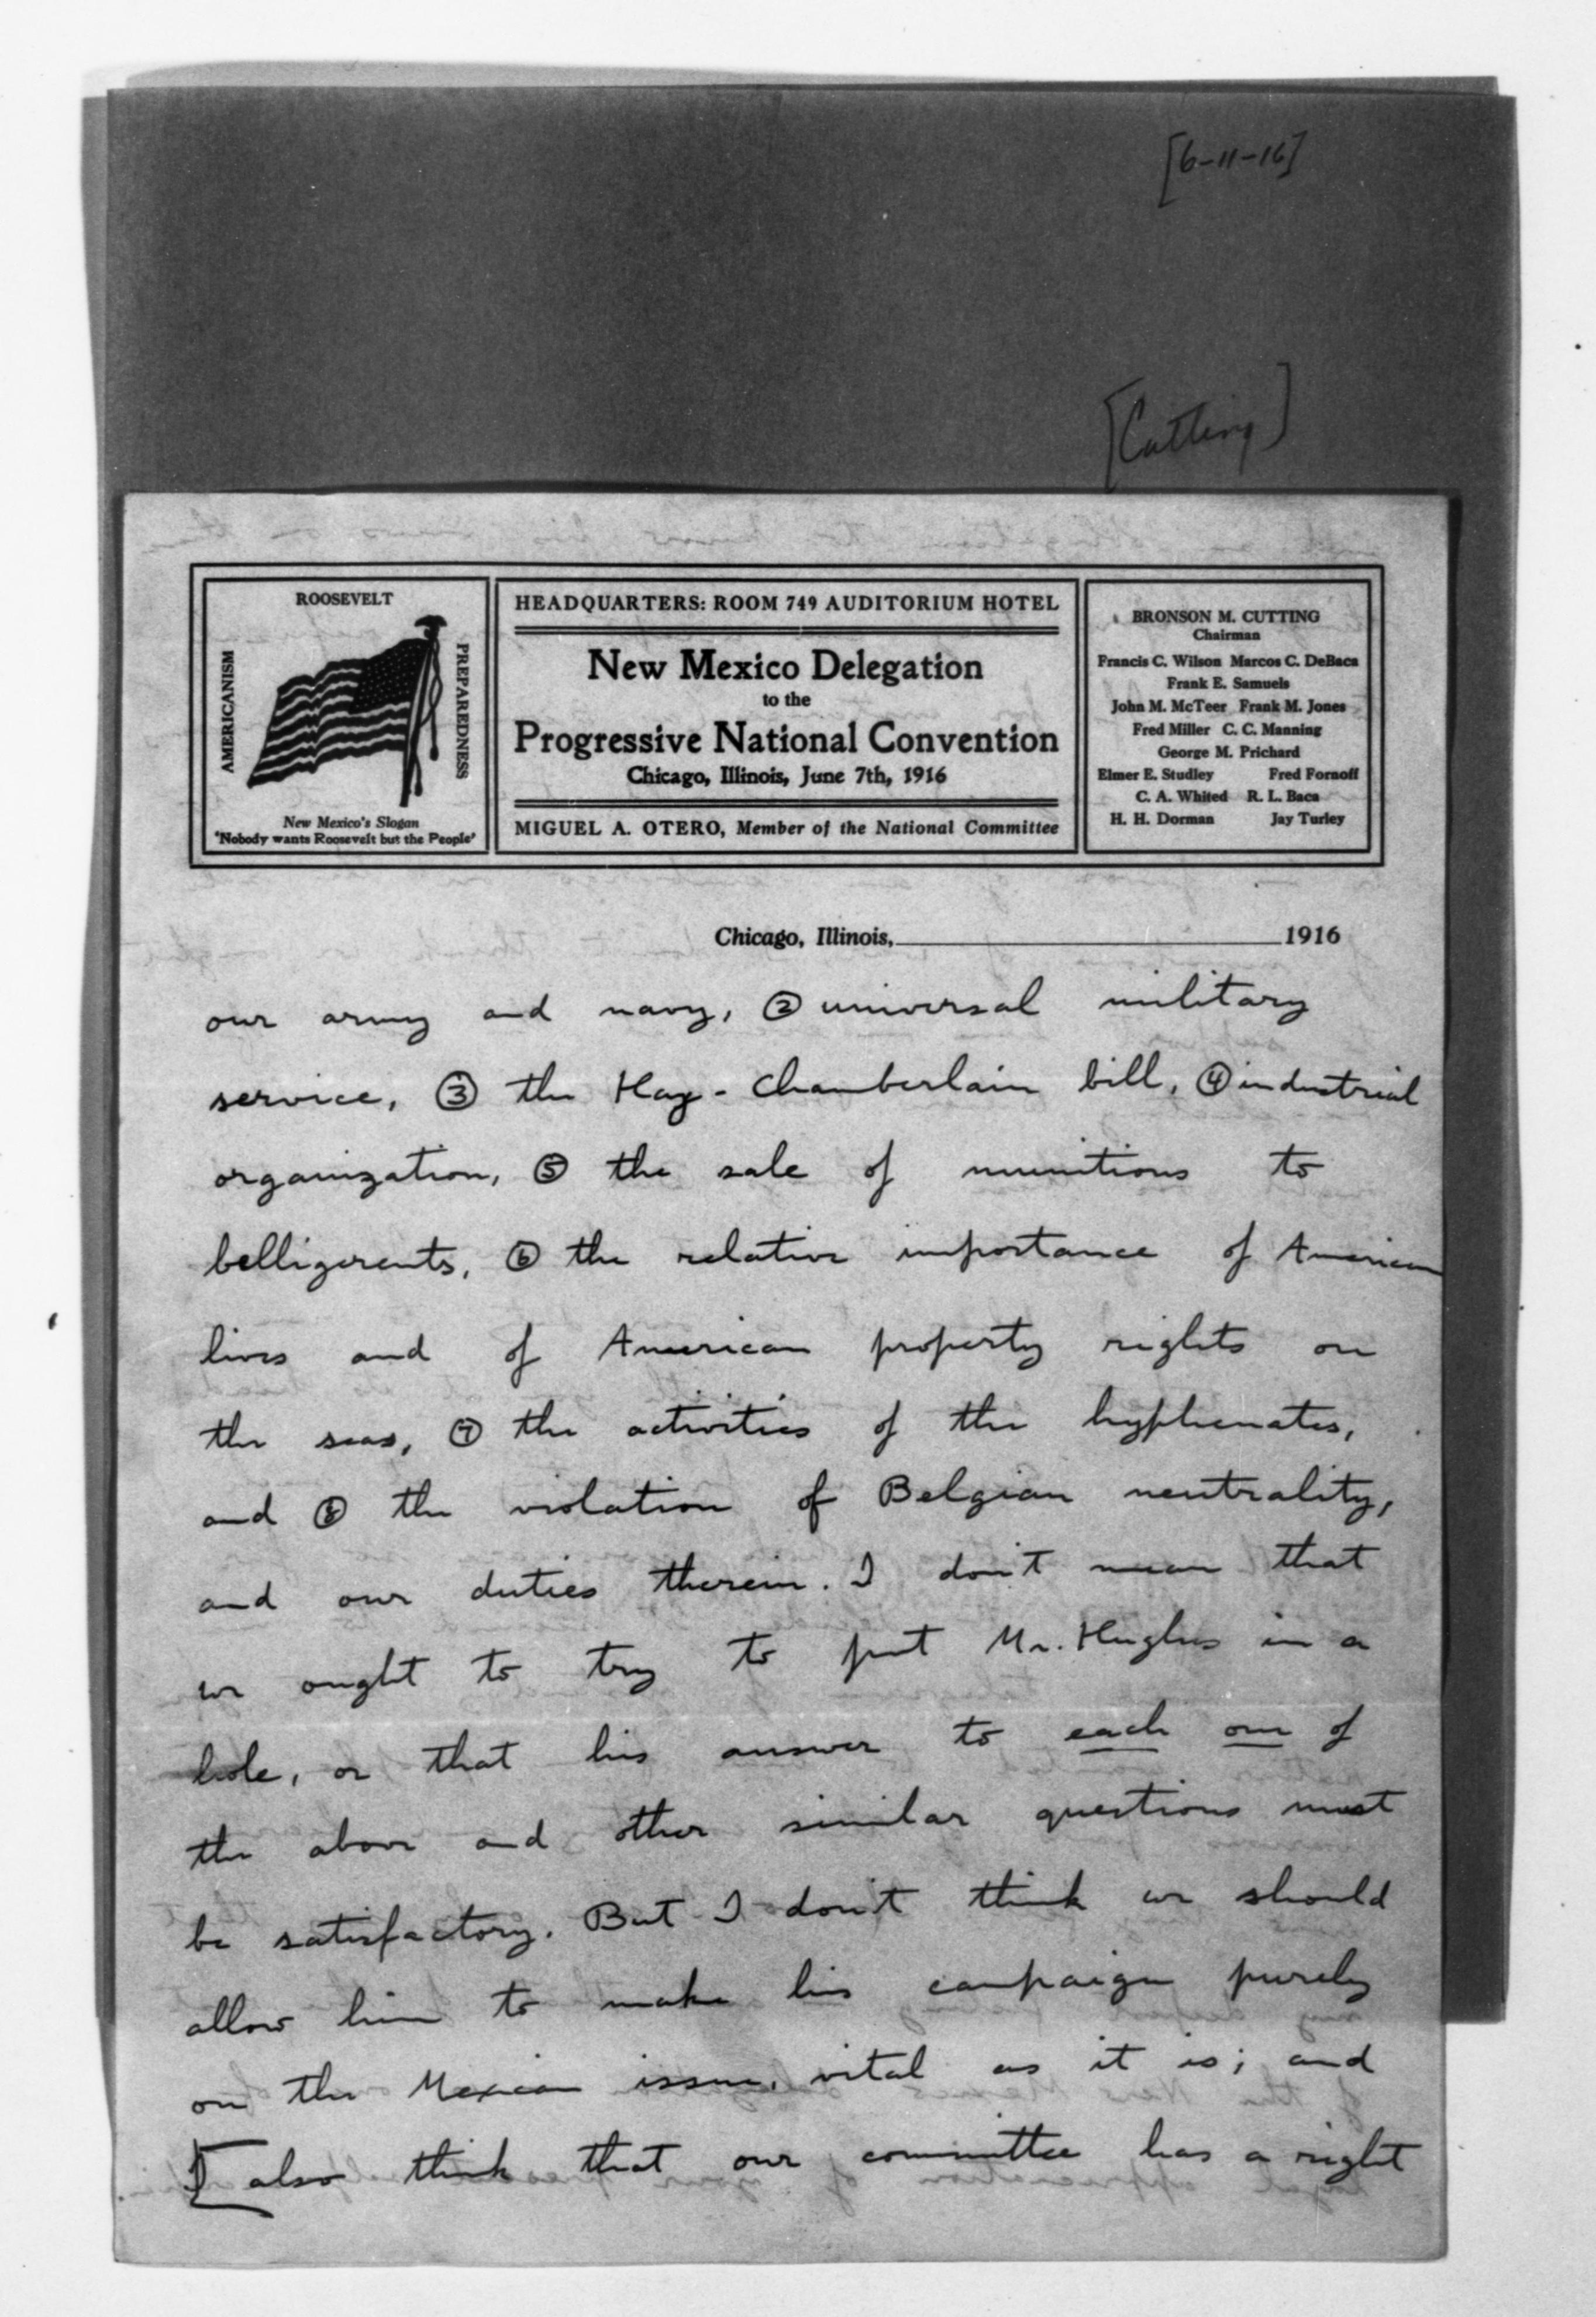 [6-11-16]
[Cutting]
ROOSEVELT
AMERICANISM
PREPAREDNESS
New Mexico's Slogan
'Nobody wants Roosevelt but the People'
HEADQUARTERS: ROOM 749 AUDITORIUM HOTEL
New Mexico Delegation
to the
Progressive National Convention
Chicago, Illinois, June 7th, 1916
MIGUEL A. OTERO, Member of the National Committee
BRONSON M. CUTTING
Chairman
Francis C. Wilson Marcos C. DeBaca
Frank E. Samuels
John M. McTeer Frank M. Jones
Fred Miller C. C. Manning
George M. Prichard
Elmer E. Studley Fred Fornoff
C. A. Whited R. L. Baca
H. H. Dorman Jay Turley
Chicago, Illinois, 1916
our army and navy, ② universal military
service, ③ the Hay-Chamberlain bill, ④ industrial
organization, ⑤ the sale of munitions to
belligerents, ⑥ the relative importance of American
lives and of American property rights on
the seas, ⑦ the activities of the hyphenates,
and ⑧ the violation of Belgian neutrality,
and our duties therein. I don't mean that
we ought to try to put Mr. Hughes in a
hole, or that his answer to each one of
the above and other similar questions must
be satisfactory. But I don't think we should
allow him to make his campaign purely
on the Mexican issue, vital as it is; and
[I also think that our committee has a right